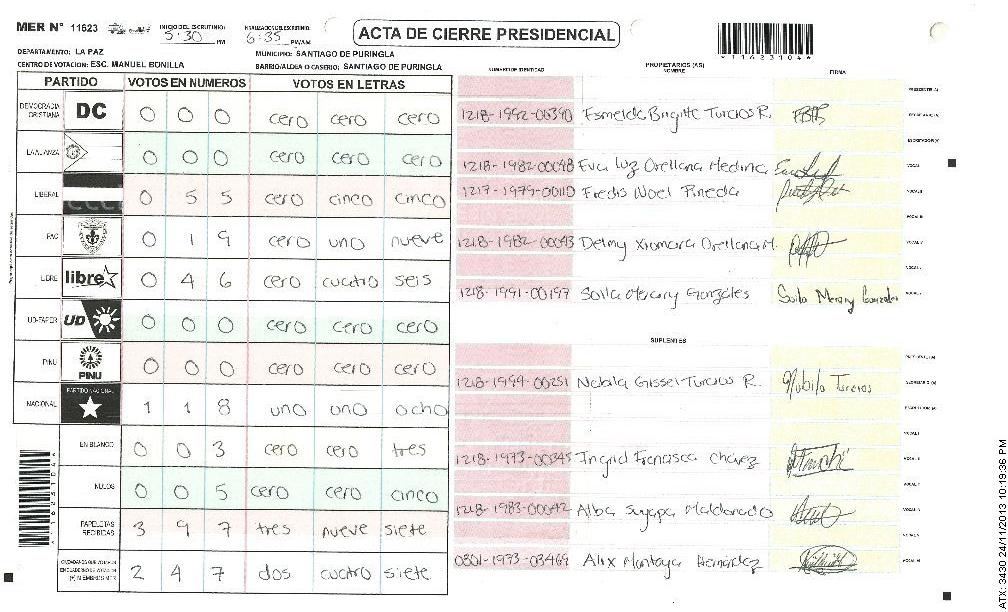 MER N° 11623
INICIO DEL ESCRUTINIO: 5:30 PM
FINALIZACION DEL ESCRUTINIO: 6:35 PM/AM
ACTA DE CIERRE PRESIDENCIAL
*11623104*
DEPARTAMENTO: LA PAZ
MUNICIPIO: SANTIAGO DE PURINGLA
CENTRO DE VOTACION: ESC. MANUEL BONILLA
BARRIO/ALDEA O CASERIO: SANTIAGO DE PURINGLA
PARTIDO VOTOS EN NUMEROS VOTOS EN LETRAS
DEMOCRACIA CRISTIANA DC 0 0 0 cero cero cero
LA ALIANZA 0 0 0 cero cero cero
LIBERAL 0 5 5 cero cinco cinco
PAC 0 1 9 cero uno nueve
LIBRE libre 0 4 6 cero cuatro seis
UD-FAPER UD 0 0 0 cero cero cero
PINU PINU 0 0 0 cero cero cero
NACIONAL PARTIDO NACIONAL 1 1 8 uno uno ocho
EN BLANCO 0 0 3 cero cero tres
NULOS 0 0 5 cero cero cinco
PAPELETAS RECIBIDAS 3 9 7 tres nueve siete
CIUDADANOS QUE VOTARON EN CUADERNO DE VOTACION (+) MIEMBROS MER 2 4 7 dos cuatro siete
NUMERO DE IDENTIDAD PROPIETARIOS (AS) NOMBRE FIRMA
PRESIDENTE (A)
1218-1992-00390 Esmelda Brigitte Turcios R. SECRETARIO (A)
ESCRUTADOR (A)
1218-1982-00098 Eva Luz Orellana Medina VOCAL I
1217-1979-00110 Fredis Noel Pineda VOCAL II
VOCAL III
1218-1982-00043 Delmy Xiomara Orellana M. VOCAL IV
VOCAL V
1218-1991-00197 Soila Merary Gonzáles Soila Merary Gonzales
SUPLENTES
PRESIDENTE (A)
1218-1994-00251 Nubila Gissel Turcios R. Nubila Turcios SECRETARIO (A)
ESCRUTADOR (A)
VOCAL I
1218-1973-00345 Ingrid Francisca Chávez VOCAL II
1218-1983-00042 Alba Suyapa Maldonado
0801-1973-03469 Alix Montoya Hernández
*11623104*
ATX: 3430 24/11/2013 10:19:36 PM